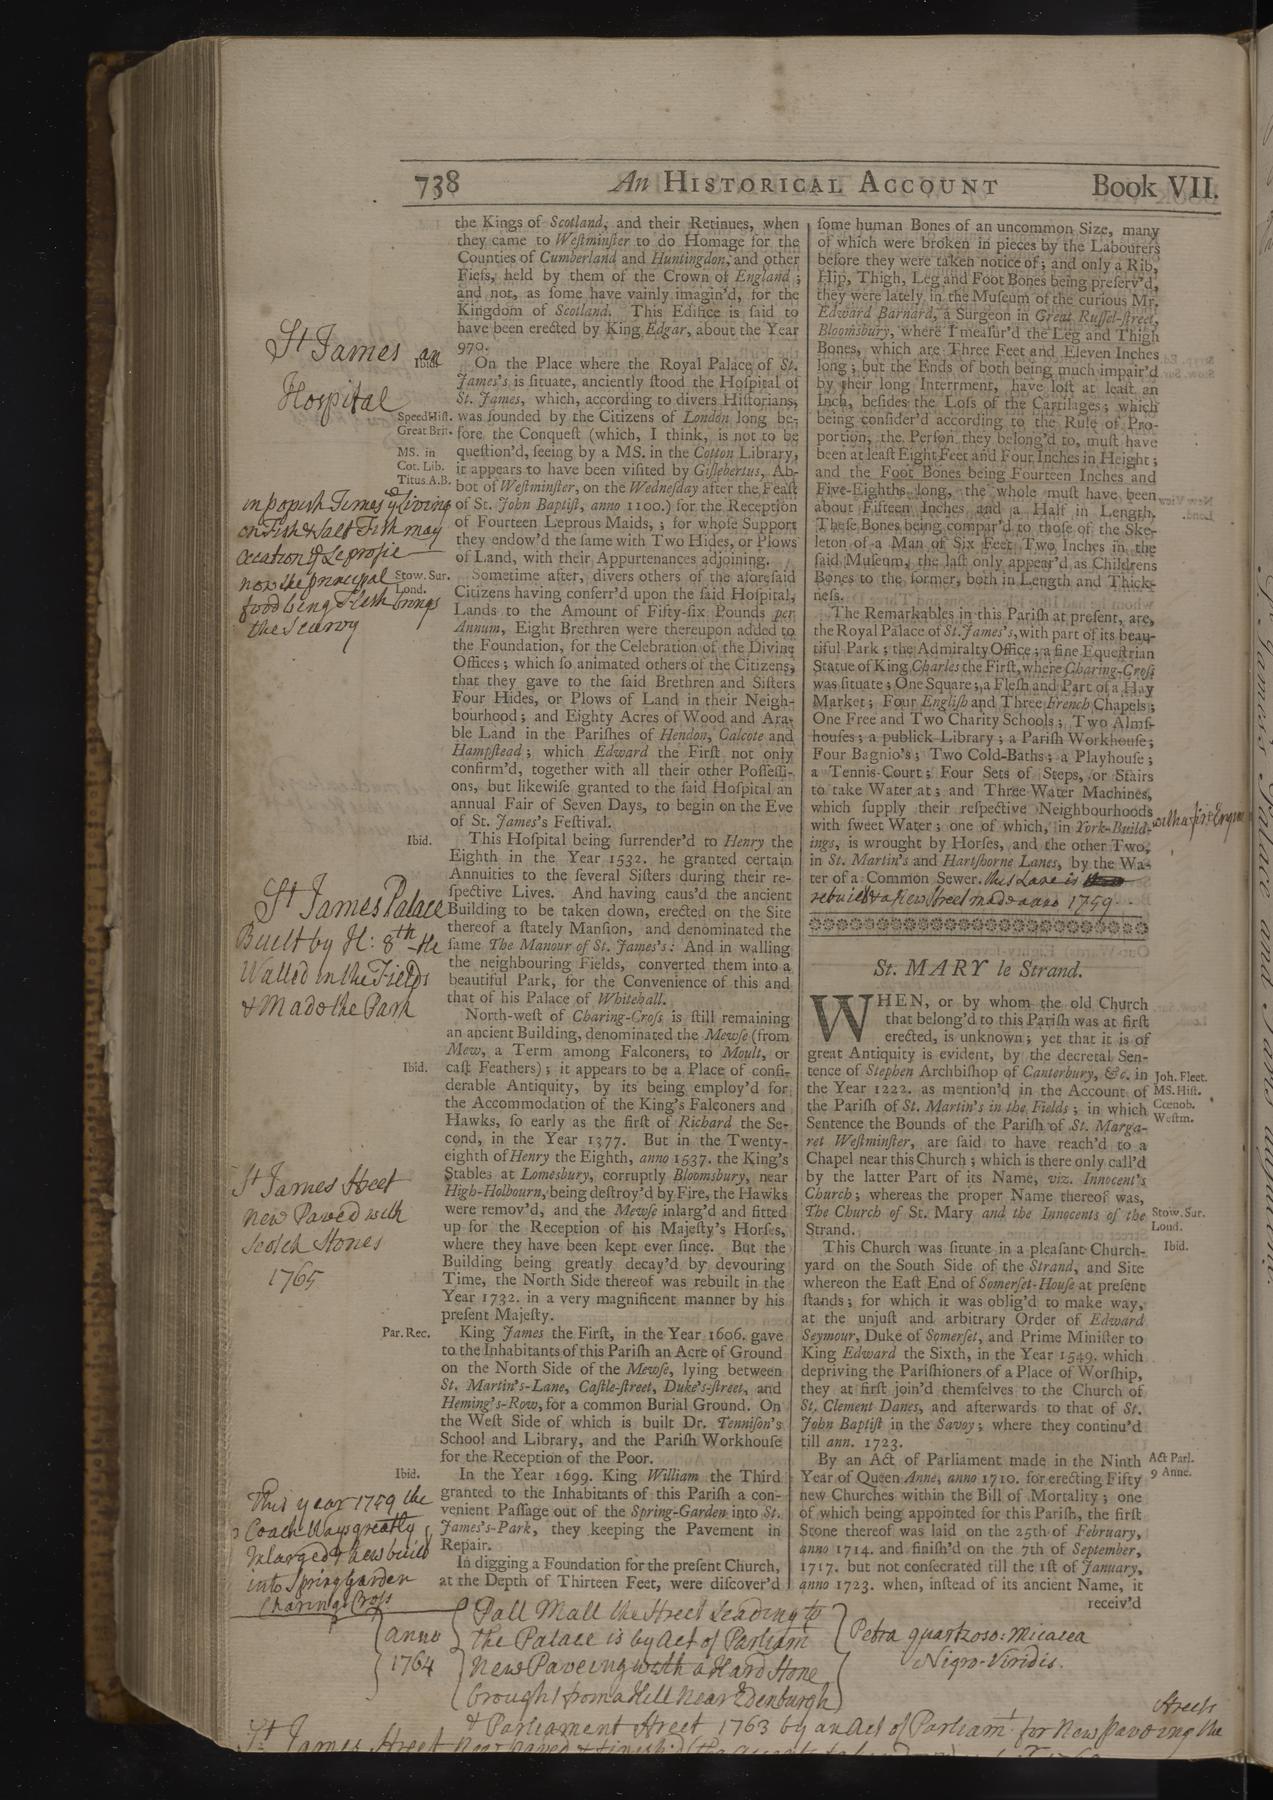 738 An HISTORICAL ACCOUNT Book VII.
the Kings of Scotland, and their Retinues, when
they came to Weſtminſter to do Homage for the
Counties of Cumberland and Huntingdon, and other
Fiefs, held by them of the Crown of England;
and not, as ſome have vainly imagin'd, for the
Kingdom of Scotland. This Edifice is ſaid to
have been erected by King Edgar, about the Year
970.
On the Place where the Royal Palace of St.
James's is ſituate, anciently ſtood the Hoſpital of
St. James, which, according to divers Hiſtorians,
was founded by the Citizens of London long be-
fore the Conqueſt (which, I think, is not to be
queſtion'd, ſeeing by a MS. in the Cotton Library,
it appears to have been viſited by Giſlebertus, Ab-
bot of Weſtminſter, on the Wedneſday after the Feaſt
of St. John Baptiſt, anno 1100.) for the Reception
of Fourteen Leprous Maids,; for whoſe Support
they endow'd the ſame with Two Hides, or Plows
of Land, with their Appurtenances adjoining.
Sometime after, divers others of the aforeſaid
Citizens having conferr'd upon the ſaid Hoſpital,
Lands to the Amount of Fifty-ſix Pounds per
Annum, Eight Brethren were thereupon added to
the Foundation, for the Celebration of the Divine
Offices; which ſo animated others of the Citizens,
that they gave to the ſaid Brethren and Siſters
Four Hides, or Plows of Land in their Neigh-
bourhood; and Eighty Acres of Wood and Ara-
ble Land in the Pariſhes of Hendon, Calcote and
Hampſtead; which Edward the Firſt not only
confirm'd, together with all their other Poſſeſſi-
ons, but likewiſe granted to the ſaid Hoſpital an
annual Fair of Seven Days, to begin on the Eve
of St. James's Feſtival.
This Hoſpital being ſurrender'd to Henry the
Eighth in the Year 1532. he granted certain
Annuities to the ſeveral Siſters during their re-
ſpective Lives. And having caus'd the ancient
Building to be taken down, erected on the Site
thereof a ſtately Manſion, and denominated the
ſame The Manour of St. James's: And in walling
the neighbouring Fields, converted them into a
beautiful Park, for the Convenience of this and
that of his Palace of Whitehall.
North-weſt of Charing-Croſs is ſtill remaining
an ancient Building, denominated the Mewſe (from
Mew, a Term among Falconers, to Moult, or
caſt Feathers); it appears to be a Place of conſi-
derable Antiquity, by its being employ'd for
the Accommodation of the King's Falconers and
Hawks, ſo early as the firſt of Richard the Se-
cond, in the Year 1377. But in the Twenty-
eighth of Henry the Eighth, anno 1537. the King's
Stables at Lomesbury, corruptly Bloomsbury, near
High-Holbourn, being deſtroy'd by Fire, the Hawks
were remov'd, and the Mewſe inlarg'd and fitted
up for the Reception of his Majeſty's Horſes,
where they have been kept ever ſince. But the
Building being greatly decay'd by devouring
Time, the North Side thereof was rebuilt in the
Year 1732. in a very magnificent manner by his
preſent Majeſty.
King James the Firſt, in the Year 1606. gave
to the Inhabitants of this Pariſh an Acre of Ground
on the North Side of the Mewſe, lying between
St. Martin's-Lane, Caſtle-ſtreet, Duke's-ſtreet, and
Heming's-Row, for a common Burial Ground. On
the Weſt Side of which is built Dr. Tenniſon's
School and Library, and the Pariſh Workhouſe
for the Reception of the Poor.
In the Year 1699. King William the Third
granted to the Inhabitants of this Pariſh a con-
venient Paſſage out of the Spring-Garden into St.
James's-Park, they keeping the Pavement in
Repair.
In digging a Foundation for the preſent Church,
at the Depth of Thirteen Feet, were diſcover'd
St James an
Hospital
Ibid.
Speed Hiſt.
Great Brit.
MS. in
Cot. Lib.
Titus A.B.
in popish Times ye Living
on Fish & Salt Fish may
ocation ye Leprosie
now the principal
food being Flesh brings
the Scurvy
Stow. Sur.
Lond.
Ibid.
St James Palace
Built by H: 8th - He
Walled in the Fields
& Made the Park
Ibid.
St James Street
New Paved with
Scotch Stones
1765
Par. Rec.
Ibid.
This year 1759 the
Coach Ways greatly
Inlarged & new built
into Spring Garden
Charing Cross
ſome human Bones of an uncommon Size, many
of which were broken in pieces by the Labourers
before they were taken notice of; and only a Rib,
Hip, Thigh, Leg and Foot Bones being preſerv'd,
they were lately in the Muſeum of the curious Mr.
Edward Barnard, a Surgeon in Great Ruſſel-ſtreet,
Bloomsbury, where I meaſur'd the Leg and Thigh
Bones, which are Three Feet and Eleven Inches
long; but the Ends of both being much impair'd
by their long Interrment, have loſt at leaſt an
Inch, beſides the Loſs of the Cartilages; which
being conſider'd according to the Rule of Pro-
portion, the Perſon they belong'd to, muſt have
been at leaſt Eight Feet and Four Inches in Height;
and the Foot Bones being Fourteen Inches and
Five-Eighths long, the whole muſt have been
about Fifteen Inches and a Half in Length.
Theſe Bones being compar'd to thoſe of the Ske-
leton of a Man of Six Feet Two Inches in the
ſaid Muſeum, the laſt only appear'd as Childrens
Bones to the former, both in Length and Thick-
neſs.
The Remarkables in this Pariſh at preſent, are,
the Royal Palace of St. James's, with part of its beau-
tiful Park; the Admiralty Office; a fine Equeſtrian
Statue of King Charles the Firſt, where Charing-Croſs
was ſituate; One Square; a Fleſh and Part of a Hay
Market; Four Engliſh and Three French Chapels;
One Free and Two Charity Schools; Two Almſ-
houſes; a publick Library; a Pariſh Workhouſe;
Four Bagnio's; Two Cold-Baths; a Playhouſe;
a Tennis-Court; Four Sets of Steps, or Stairs
to take Water at; and Three Water Machines,
which ſupply their reſpective Neighbourhoods
with ſweet Water; one of which, in York-Build-
ings, is wrought by Horſes, and the other Two,
in St. Martin's and Hartſhorne Lanes, by the Wa-
ter of a Common Sewer. this Lane is
rebuilt & a New Street made anno 1759
St. MARY le Strand.
WHEN, or by whom the old Church
that belong'd to this Pariſh was at firſt
erected, is unknown; yet that it is of
great Antiquity is evident, by the decretal Sen-
tence of Stephen Archbiſhop of Canterbury, &c. in
the Year 1222. as mention'd in the Account of
the Pariſh of St. Martin's in the Fields; in which
Sentence the Bounds of the Pariſh of St. Marga-
ret Weſtminſter, are ſaid to have reach'd to a
Chapel near this Church; which is there only call'd
by the latter Part of its Name, viz. Innocent's
Church; whereas the proper Name thereof was,
The Church of St. Mary and the Innocents of the
Strand.
This Church was ſituate in a pleaſant Church-
yard on the South Side of the Strand, and Site
whereon the Eaſt End of Somerſet-Houſe at preſent
ſtands; for which it was oblig'd to make way,
at the unjuſt and arbitrary Order of Edward
Seymour, Duke of Somerſet, and Prime Miniſter to
King Edward the Sixth, in the Year 1549. which
depriving the Pariſhioners of a Place of Worſhip,
they at firſt join'd themſelves to the Church of
St. Clement Danes, and afterwards to that of St.
John Baptiſt in the Savoy; where they continu'd
till ann. 1723.
By an Act of Parliament made in the Ninth
Year of Queen Anne, anno 1710. for erecting Fifty
new Churches within the Bill of Mortality; one
of which being appointed for this Pariſh, the firſt
Stone thereof was laid on the 25th of February,
anno 1714. and finiſh'd on the 7th of September,
1717. but not conſecrated till the 1ſt of January,
anno 1723. when, inſtead of its ancient Name, it
receiv'd
with a fire Engine
Joh. Fleet.
MS. Hiſt.
Cœnob.
Weſtm.
Stow. Sur.
Lond.
Ibid.
Act Parl.
9 Anne.
anno
1764
Pall Mall the Street Leading to
the Palace is by Act of Parliam
New Paveing with a Hard Stone
brought from a Hill Near Edenburgh
Petra quartzoso: Micacea
Nigro-Viridis.
& Parliament Street 1763 by an Act of Parliamt for New paveing the
Streets
St James Street New paved